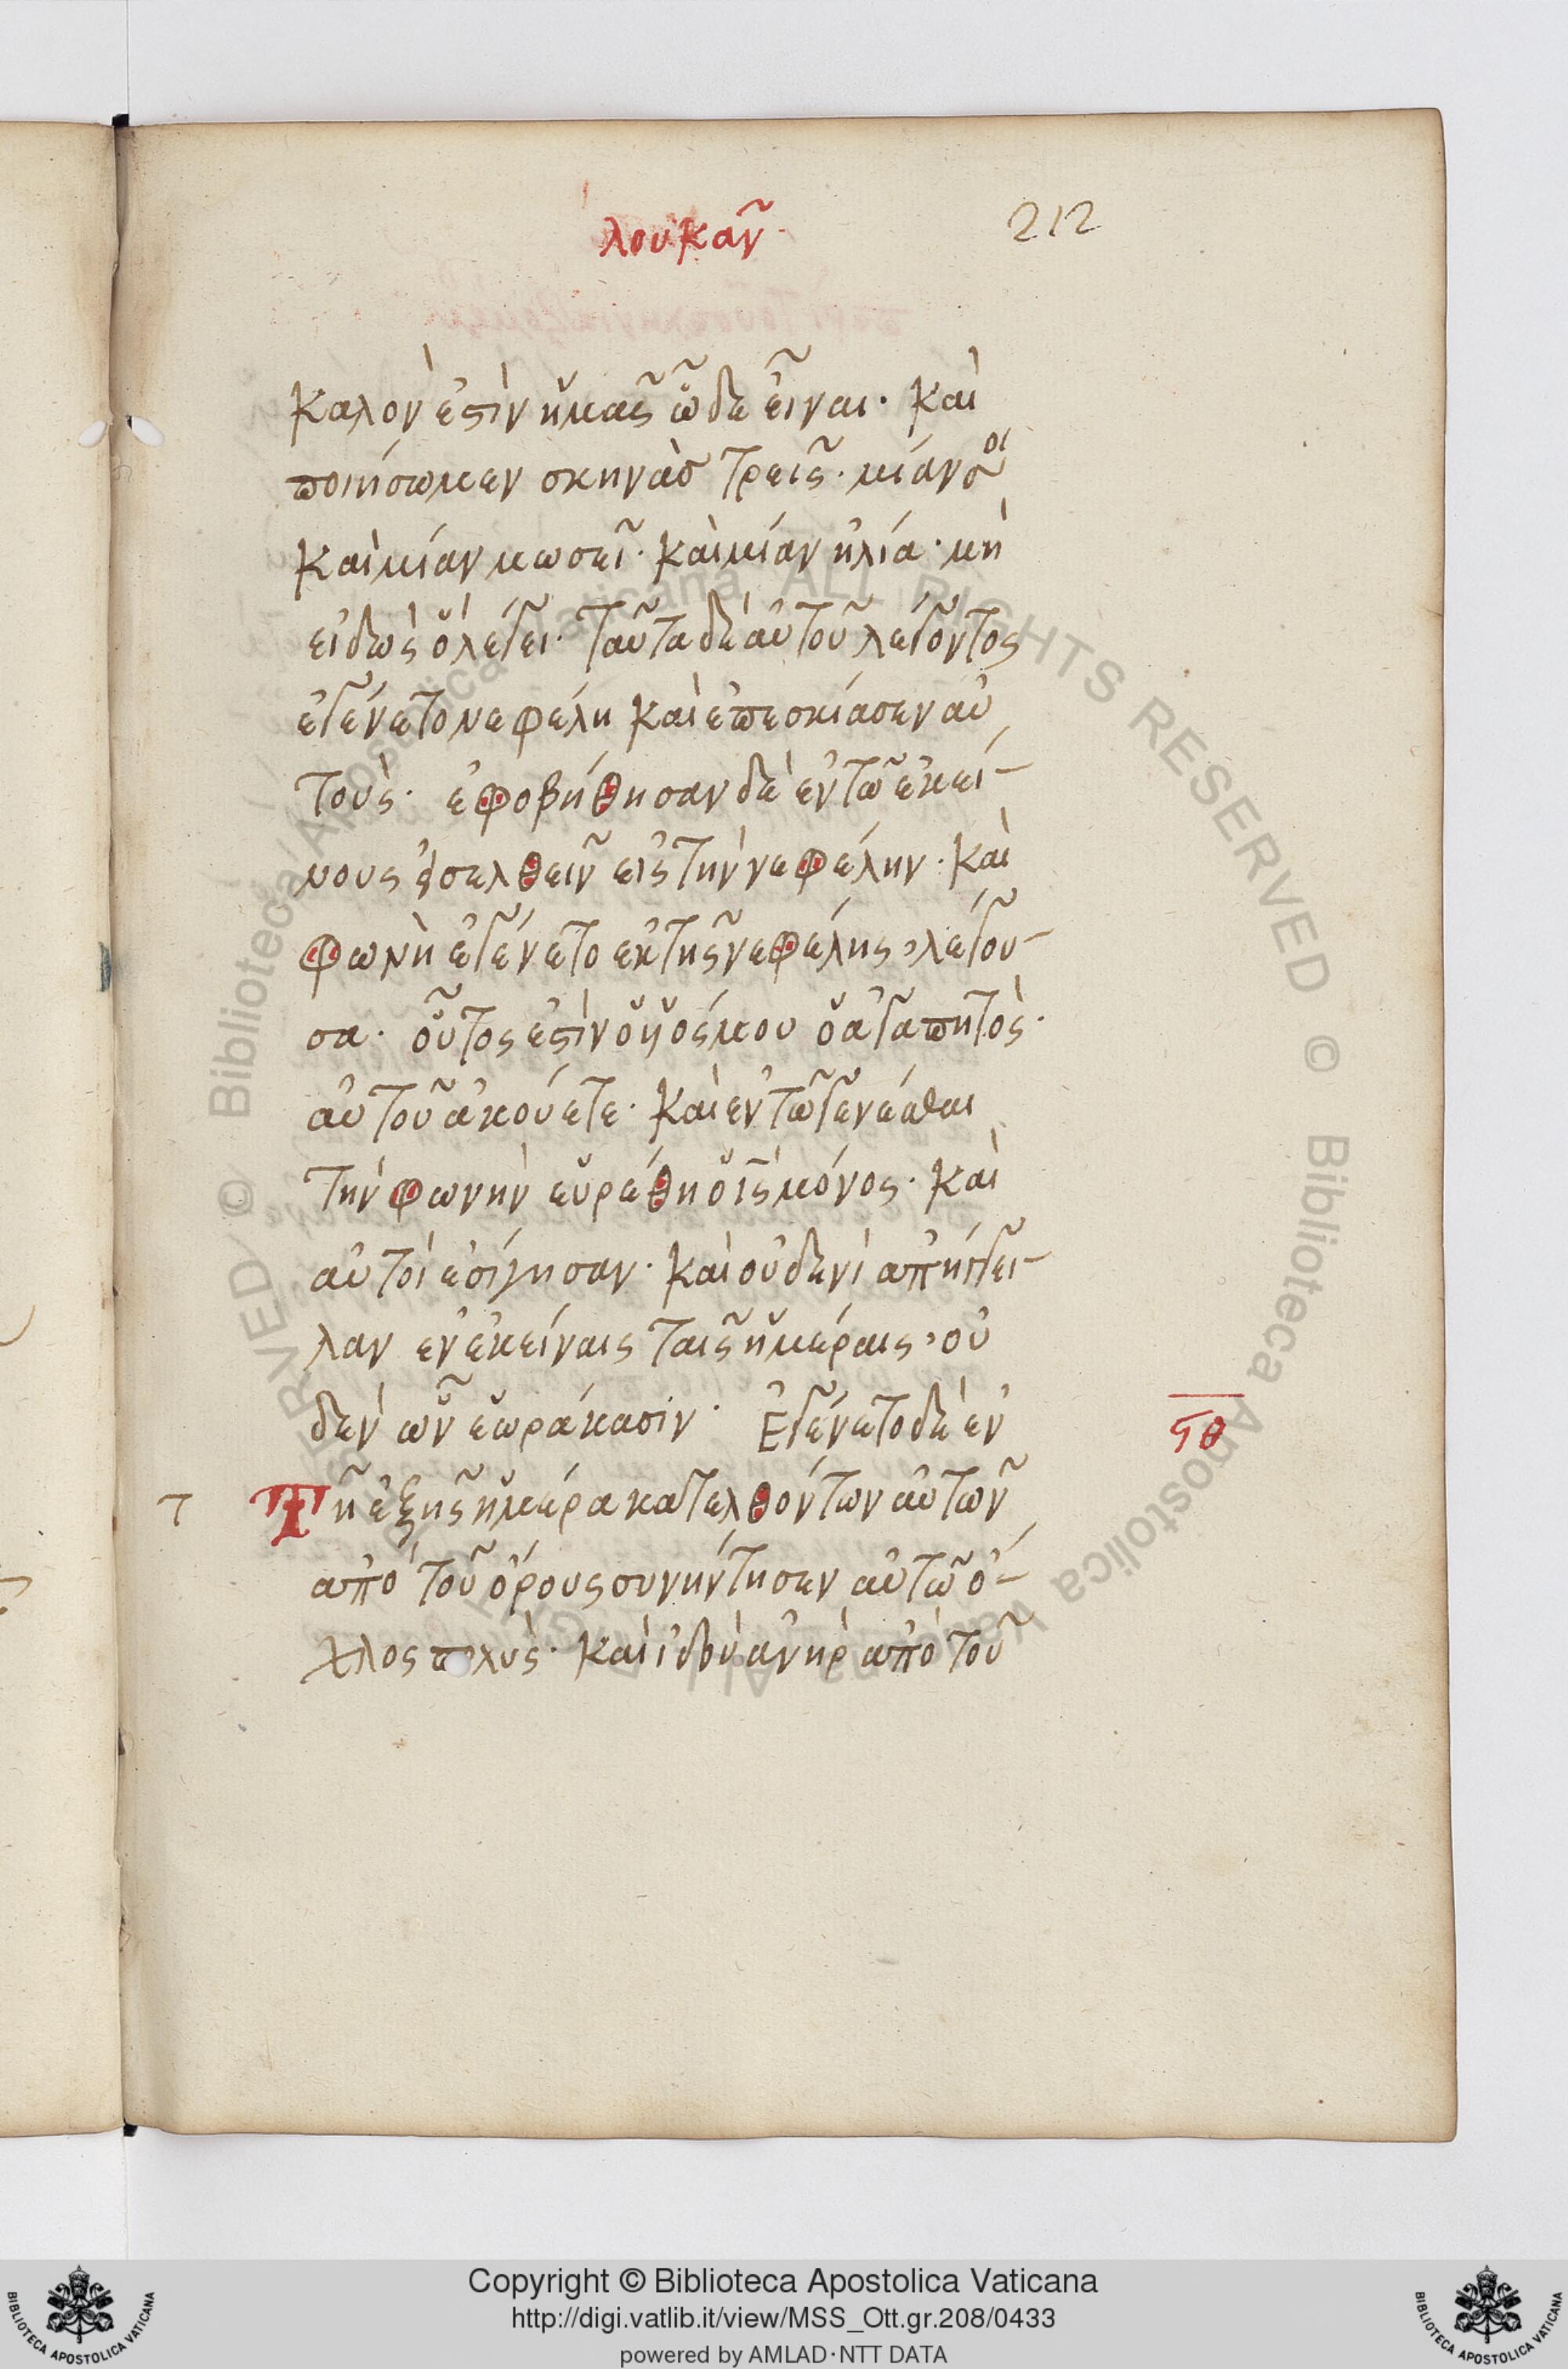 λουκᾶν
212
καλὸν ἐστὶν ἡμᾶς ὧδε εἶναι· καὶ
ποιήσωμεν σκηνὰσ τρεῖς· μίαν σοὶ
καὶ μίαν μωσεῖ· καὶ μίαν ἠλία· μὴ
εἰδὼς ὃ λέγει· ταῦτα δὲ αὐτοῦ λέγοντος
ἐγένετο νεφέλη καὶ ἐπεσκίασεν αὐ
τοὺς· ἐφοβήθησαν δὲ ἐν τῶ ἐκεί-
νους εἰσελθεῖν εἰς τὴν νεφέλην· καὶ
φωνὴ ἐγένετο ἐκ τῆς νεφέλης, λέγου-
σα· οὗτος ἐστὶν ὁ υἱός μου ὁ ἀγαπητὸς·
αὐτοῦ ἀκούετε· καὶ ἐν τῶ γενέσθαι
τὴν φωνὴν εὑρέθη ὁ ις μόνος· καὶ
αὐτοὶ ἐσίγησαν· καὶ οὐδενὶ ἀπήγγει-
λαν ἐν ἐκείναις ταῖς ἡμέραις, οὐ
δὲν ὧν ἑωράκασιν· Ἐγένετο δὲ ἐν
ϟθ
τ
Τῆ ἑξῆς ἡμέρα κατελθόντων αὐτῶν
ἀπὸ τοῦ ὄρους συνήντησεν αὐτῶ ὄ-
χλος πολὺς· καὶ ἰδοὺ ἀνὴρ ἀπὸ τοῦ
Copyright © Biblioteca Apostolica Vaticana
http://digi.vatlib.it/view/MSS_Ott.gr.208/0433
powered by AMLAD·NTT DATA